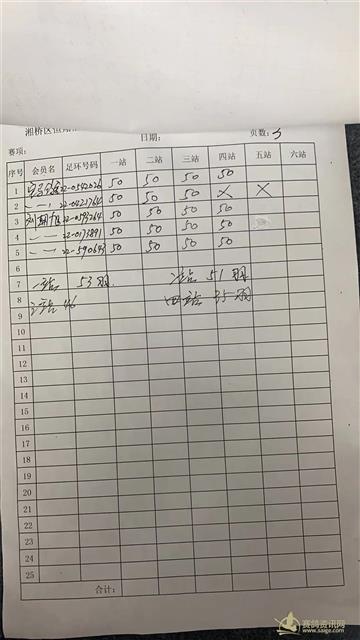 湘桥区
赛项： 日期： 页数：3
序号 会员名 足环号码 一站 二站 三站 四站 五站 六站
1 22-0542026 50 50 50 50
2 22-0421764 50 50 50 × ×
3 22-0593264 50 50 50 50
4 22-0173891 50 50 50 50
5 22-590693 50 50 50 50
6
7 一站 53羽 51羽
8 46 四站 35羽
9
10
11
12
13
14
15
16
17
18
19
20
21
22
23
24
25
合计：
赛鸽资讯网
www.saige.com